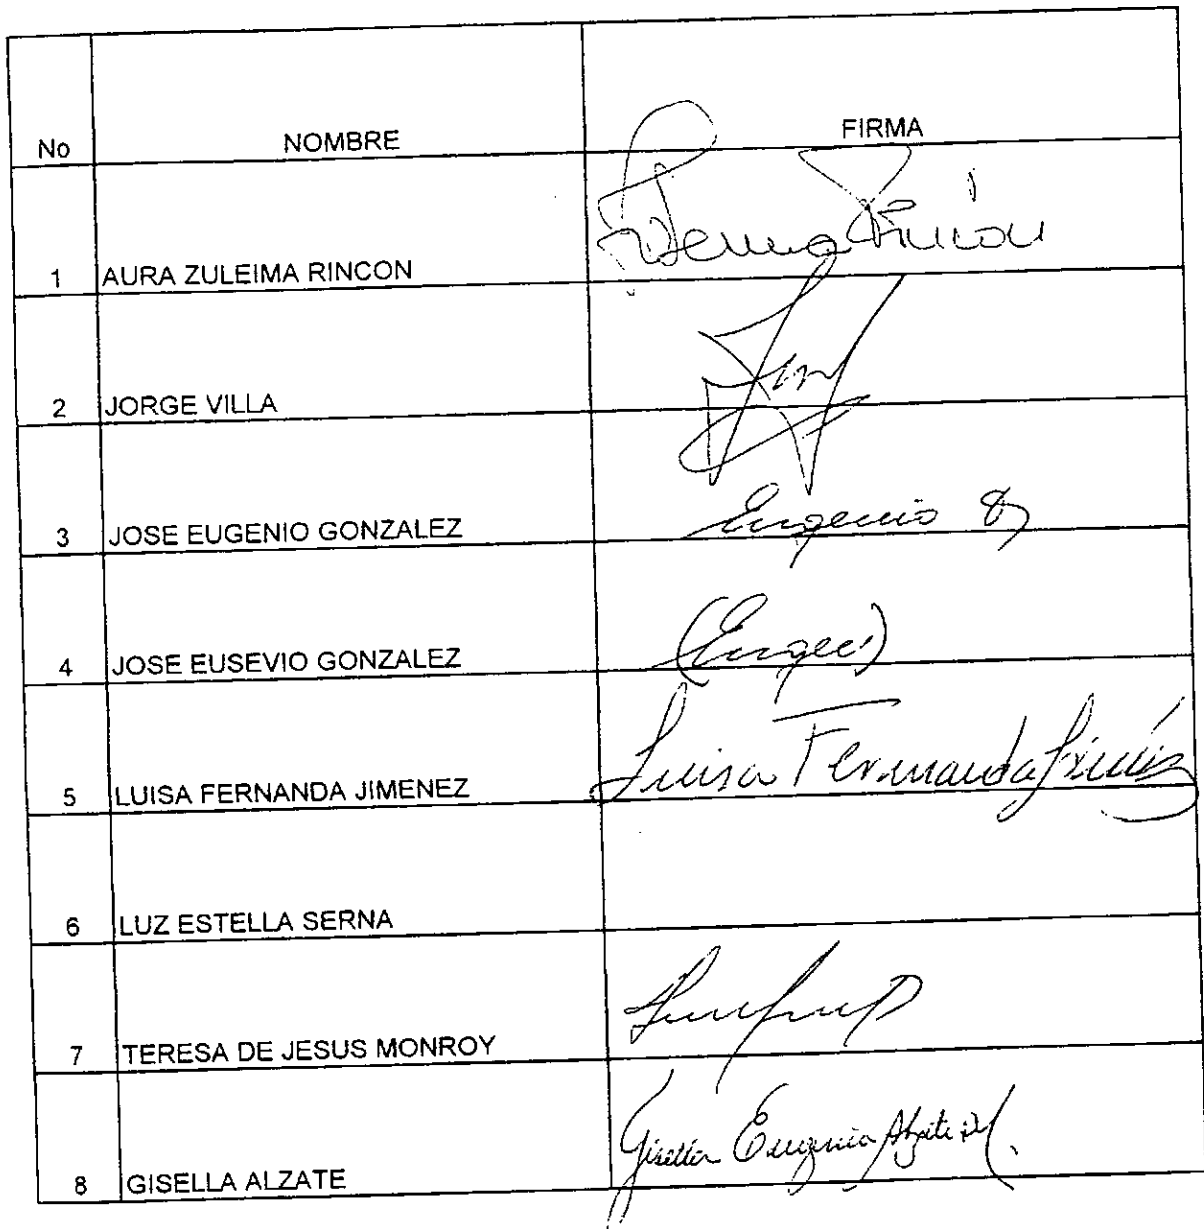 No NOMBRE FIRMA
1 AURA ZULEIMA RINCON Rincon
2 JORGE VILLA
3 JOSE EUGENIO GONZALEZ Eugenio
4 JOSE EUSEVIO GONZALEZ
5 LUISA FERNANDA JIMENEZ Luisa Fernanda
6 LUZ ESTELLA SERNA
7 TERESA DE JESUS MONROY
8 GISELLA ALZATE Gisella Eugenia Alzate